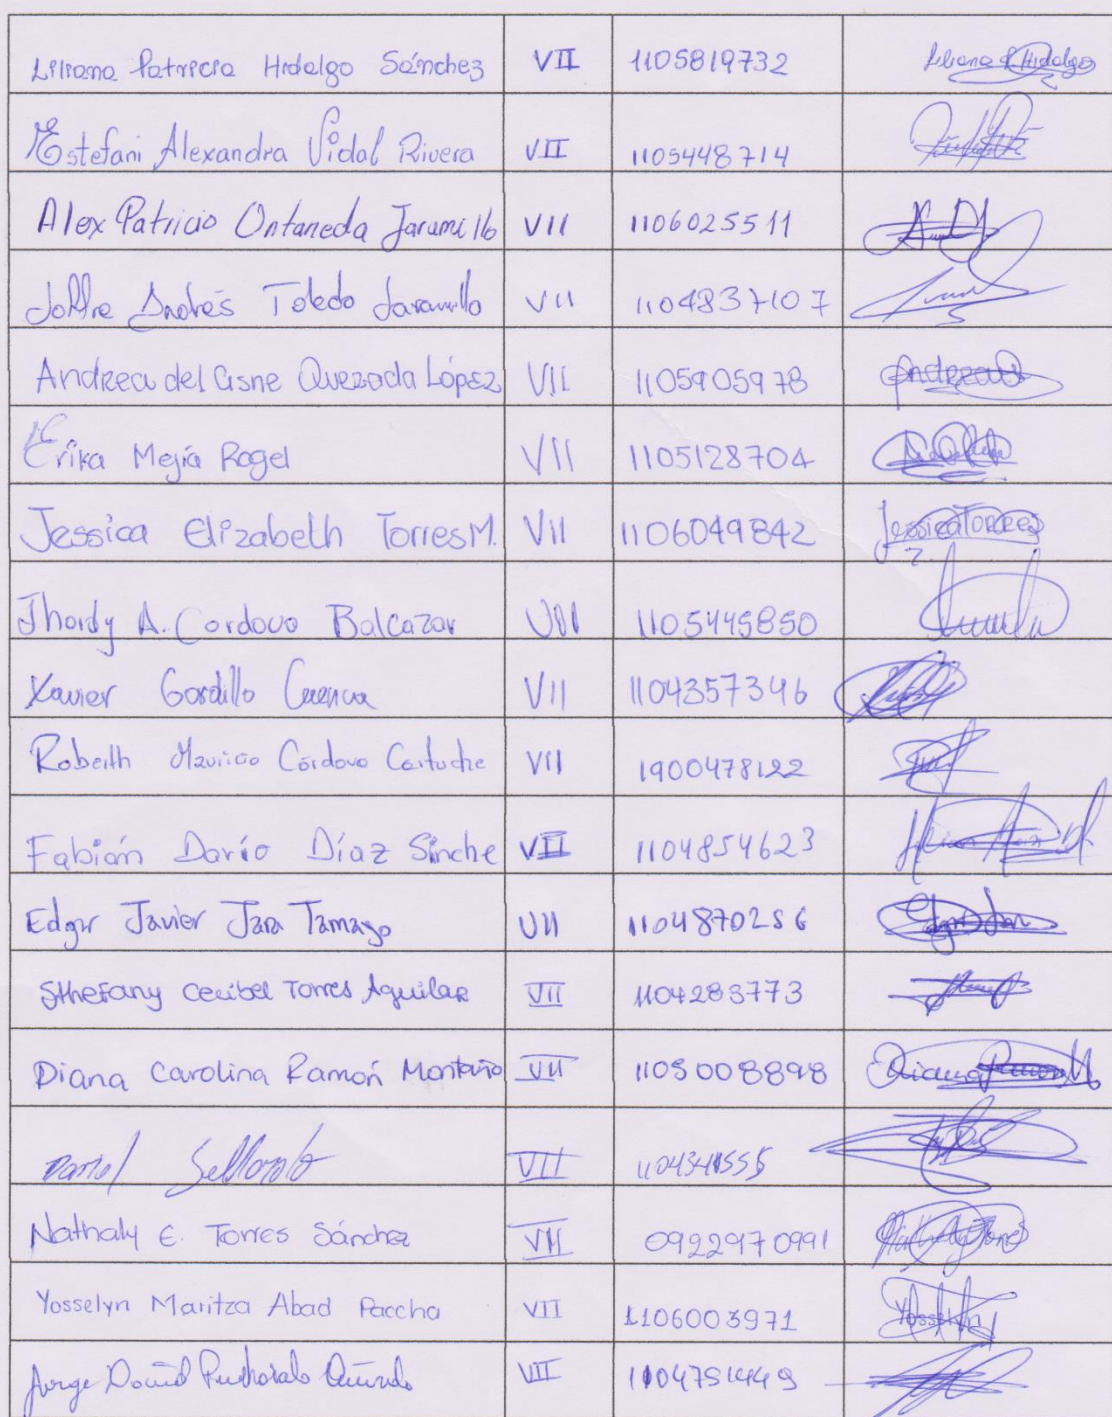 Liliana Patricia Hidalgo Sánchez VII 1105819732 Liliana P Hidalgo
Estefani Alexandra Vidal Rivera VII 1105448714
Alex Patricio Ontaneda Jaramillo VII 1106025511
Joffre Andrés Toledo Jaramillo VII 1104837107
Andrea del Cisne Quezada López VII 1105905978 Andrea
Erika Mejía Rogel VII 1105128704
Jessica Elizabeth Torres M. VII 1106049842 Jessica Torres
Jhordy A. Cordova Balcazar VII 1105445850
Xavier Gordillo Cuenca VII 1104357346
Roberth Mauricio Córdova Cartuche VII 1900478122
Fabián Darío Díaz Sinche VII 1104854623
Edgar Javier Jara Tamayo VII 1104870256
Sthefany Cecibel Torres Aguilar VII 1104283773
Diana Carolina Ramón Montaño VII 1105008898 Diana Ramon M
Daniel VII
Nathaly E. Torres Sánchez VII 0922970991
Yosselyn Maritza Abad Paccha VII 1106003971 Yosselyn
Jorge David VII